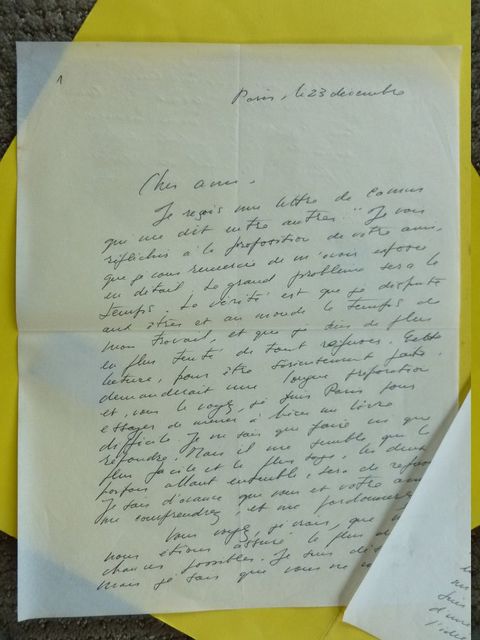 1
Paris, le 23 décembre
Cher ami,
Je reçois une lettre de Camus
qui me dit entre autres : "Je vais
réfléchir à la proposition de votre ami,
que je vous remercie de m'avoir exposée
en détail. Le grand problème sera le
temps. La vérité est que je dispute
aux êtres et au monde le temps de
mon travail, et que je suis de plus
en plus tenté de tout refuser. Cette
lecture, pour être sérieusement faite,
demanderait une longue préparation
et, vous le voyez, je fuis Paris pour
essayer de mener à bien un livre
difficile. Je ne sais que faire ni que
répondre. Mais il me semble que le
plus facile et le plus sage, les deux
parfois allant ensemble, sera de refuser
Je sais d'avance que vous et votre ami
me comprendrez, et me pardonnerez
Vous voyez, je crois, que
nous étions assuré le plus
chances possibles. Je suis
mais je sais que vous ne
suis
d'une